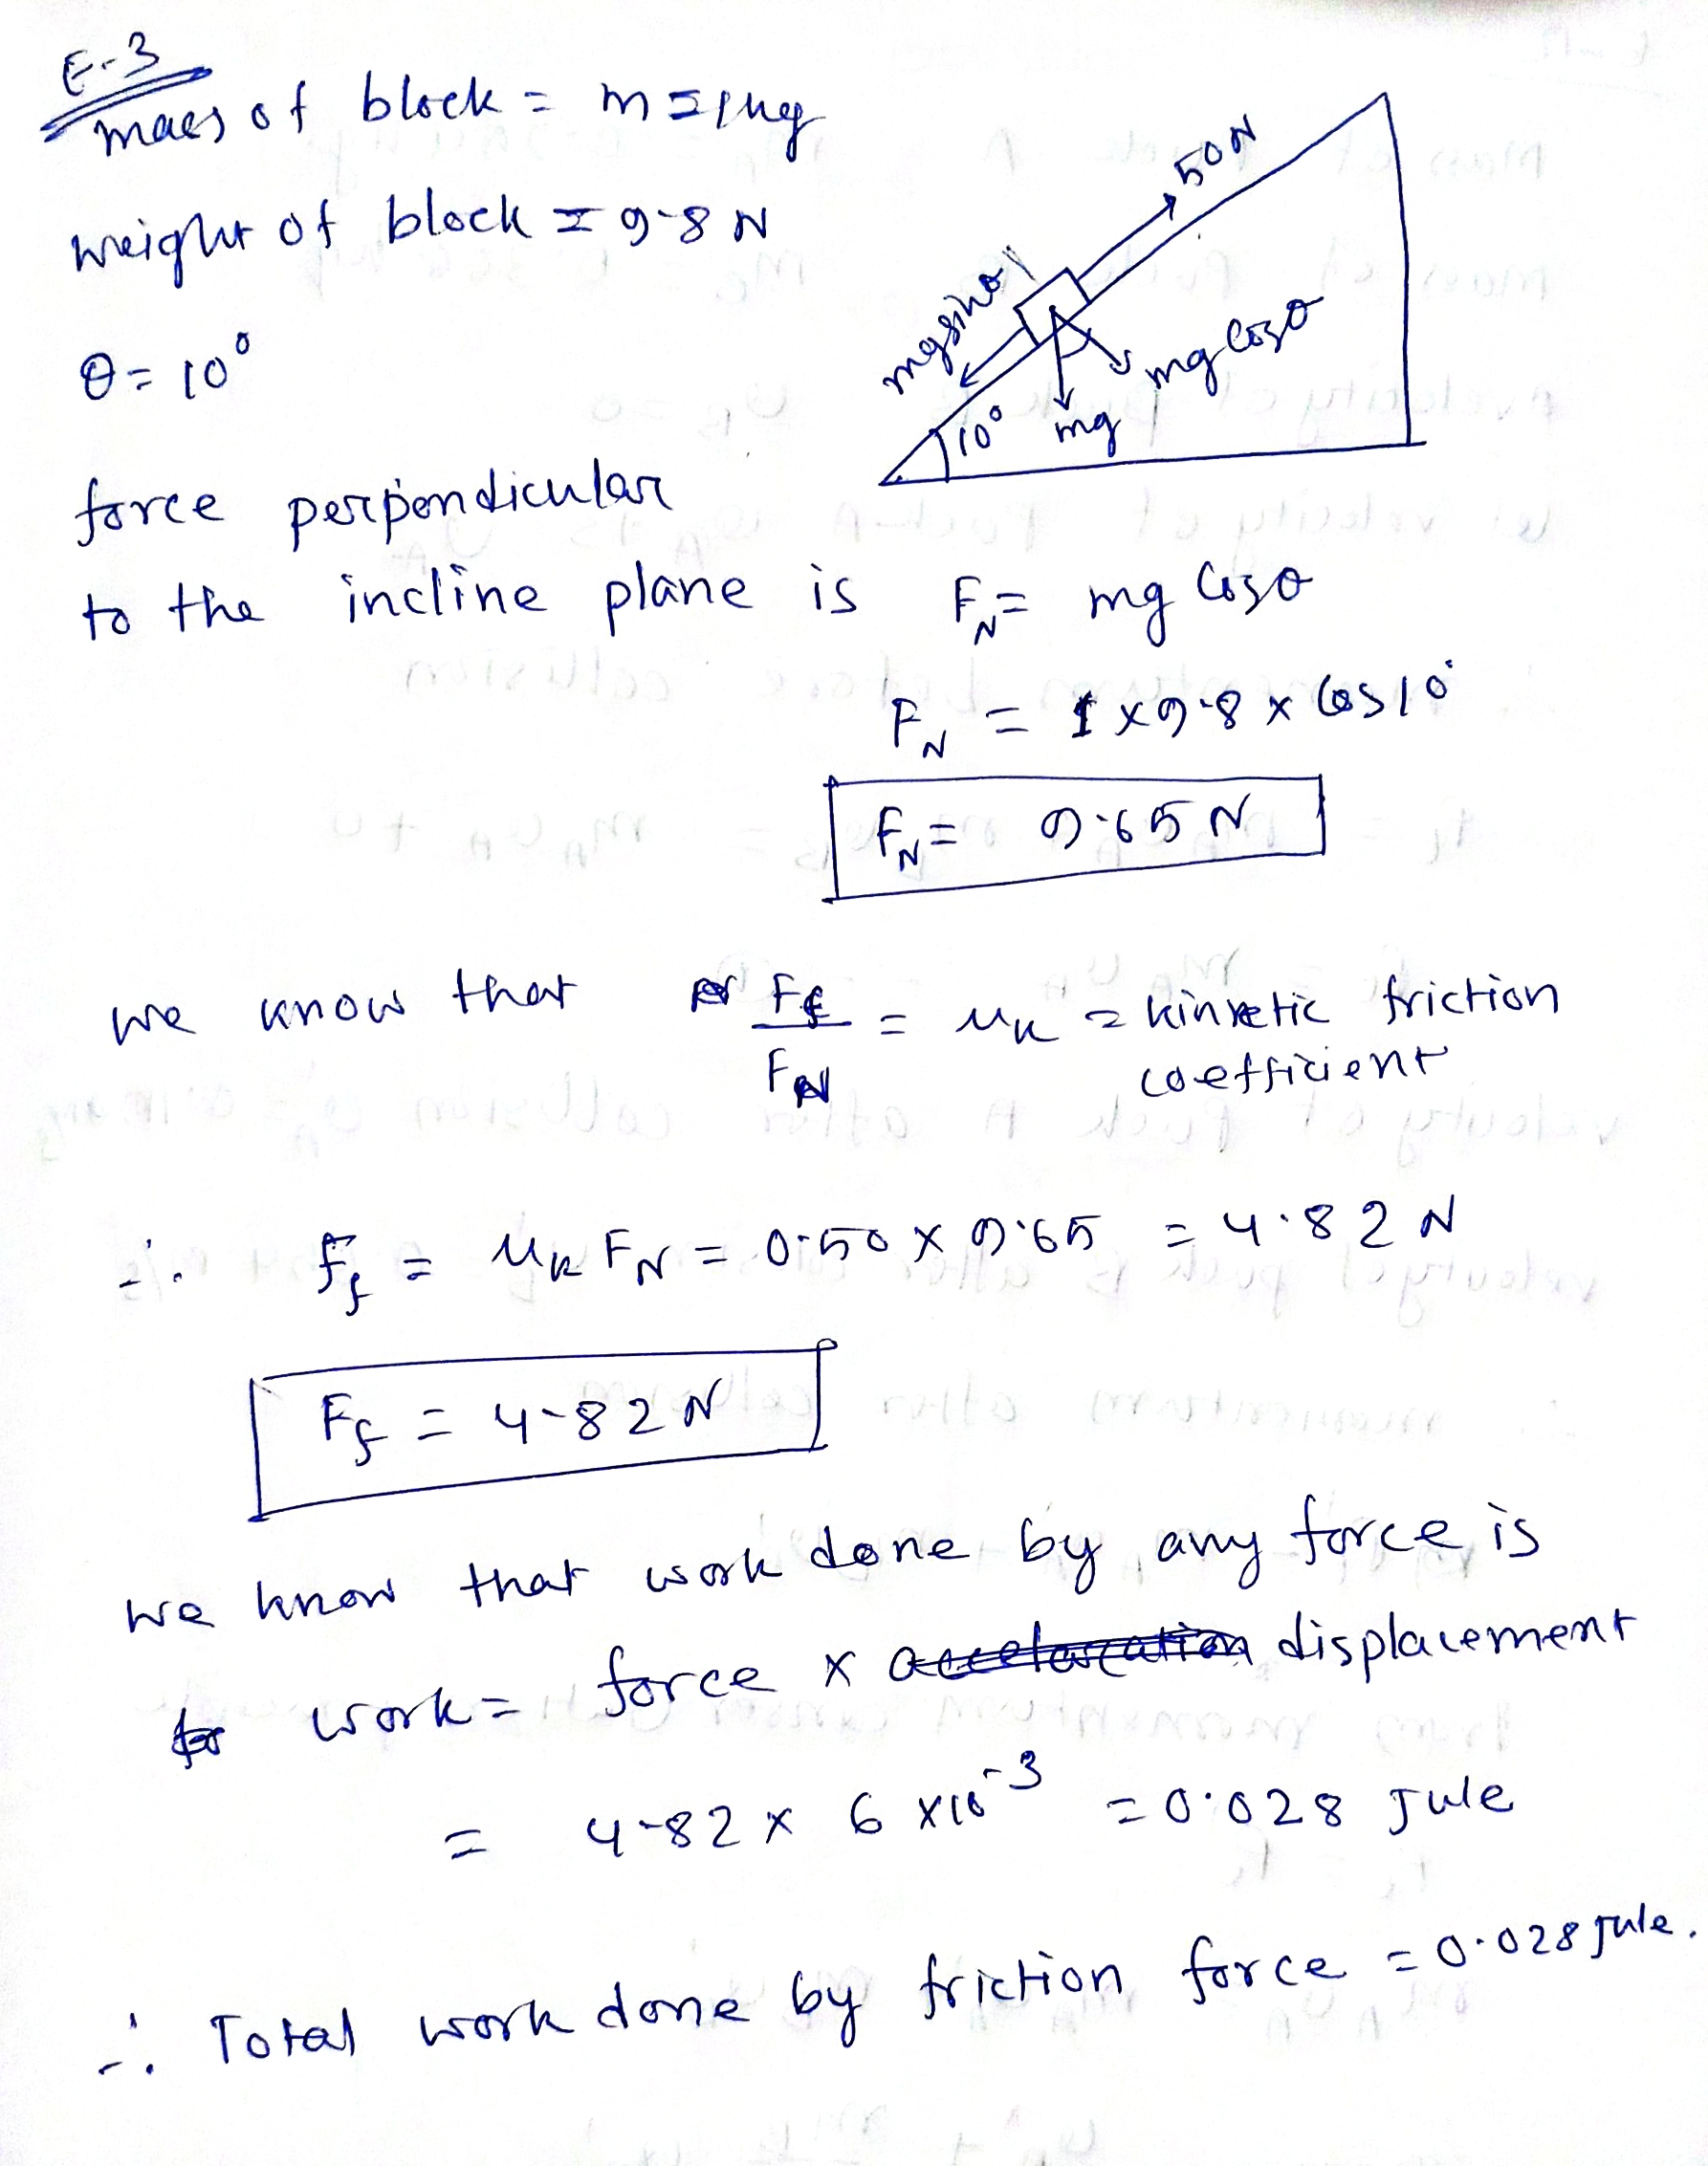 E-3
mass of block = m = 1 kg
weight of block = 9.8 N
θ = 10°
50N
mg sinθ
mg cosθ
mg
10°
force perpendicular
to the incline plane is F_N = mg cosθ
F_N = 1 × 9.8 × cos10°
F_N = 9.65 N
we know that F_f / F_N = μ_k = kinetic friction
coefficient
∴ F_f = μ_k F_N = 0.50 × 9.65 = 4.82 N
F_f = 4.82 N
we know that work done by any force is
work = force × displacement
= 4.82 × 6 × 10⁻³ = 0.028 Jule
∴ Total work done by friction force = 0.028 Jule.